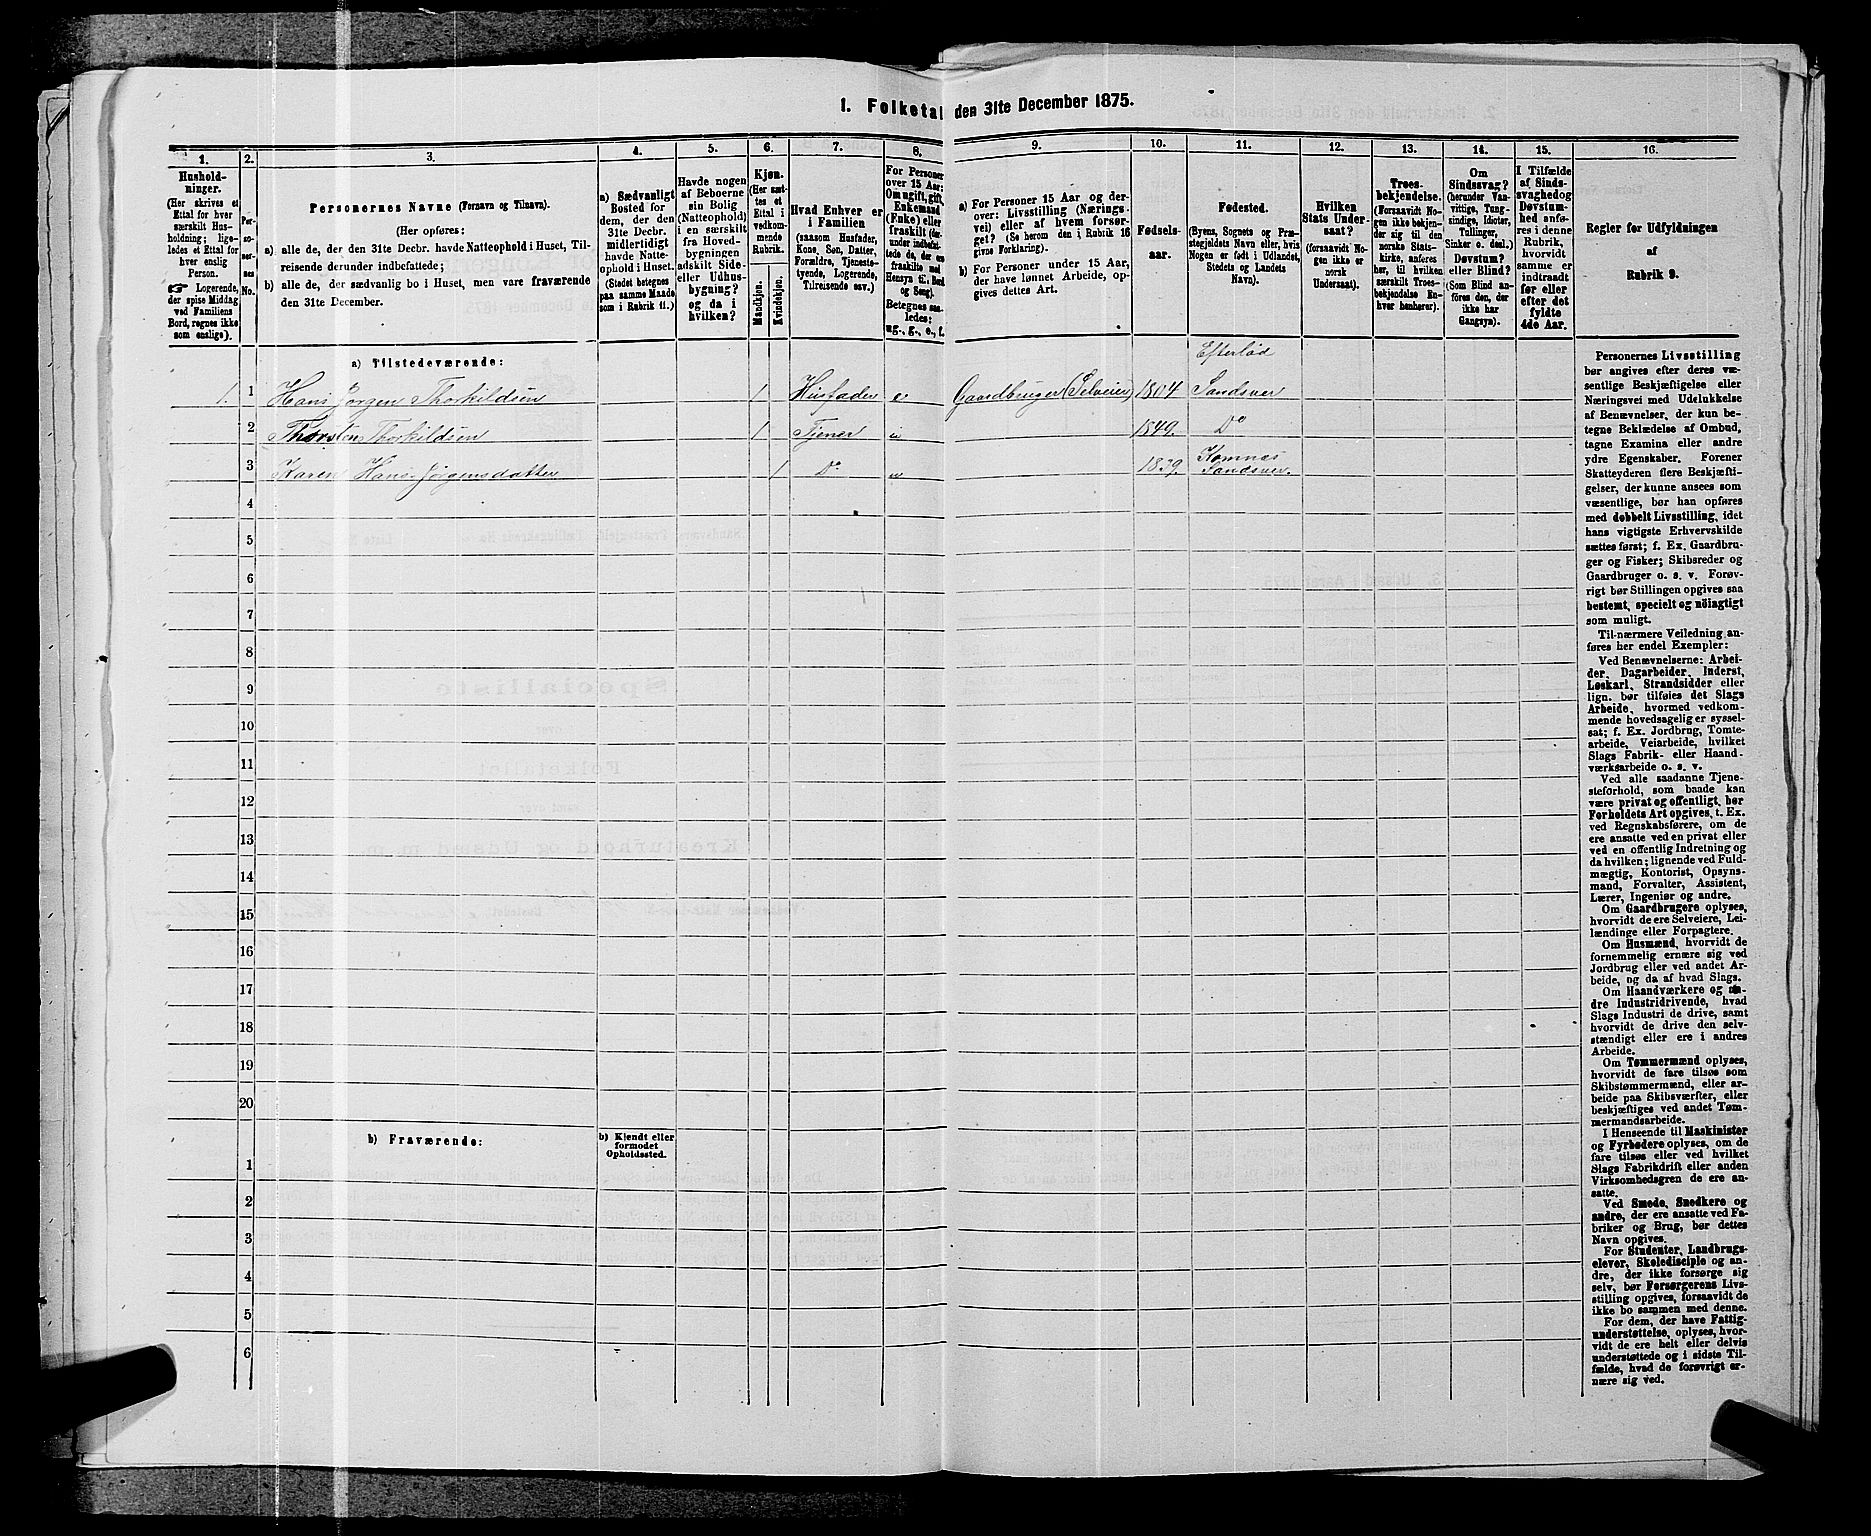 1. Folketal den 31te December 1875.
1. 2. 3. 4. 5. 6. 7. 8. 9. 10. 11. 12. 13. 14. 15. 16.
Hushold-
ninger.
(Her skrives et
Ettal for hver
særskilt Hus-
holdning; lige-
ledes et Ettal for
hver enslig
Person.
☛ Logerende,
der spise Middag
ved Familiens
Bord, regnes ikke
som enslige).
Per-
so-
ner-
nes
No.
Personernes Navne (Fornavn og Tilnavn).
(Her opføres:
a) alle de, der den 31te Decbr. havde Natteophold i Huset, Til-
reisende derunder indbefattede;
b) alle de, der sædvanlig bo i Huset, men vare fraværende
den 31te December.
a) Sædvanligt
Bosted for
dem, der den
31te Decbr.
midlertidigt
havde Natte-
ophold i Huset.
(Stedet betegnes
paa samme Maade
som i Rubrik 11.)
Havde nogen
af Beboerne
sin Bolig
(Natteophold)
i en særskilt
fra Hoved-
bygningen
adskilt Side-
eller Udhus-
bygning?
og da i
hvilken?
Kjøn.
(Her sæt-
tes et
Ettal i
vedkom-
mende
Rubrik.
Mandkjøn.
Kvindekjøn.
Hvad Enhver er
i Familien
(saasom Husfader,
Kone, Søn, Datter,
Forældre, Tjeneste-
tyende, Logerende,
Tilreisende osv.)
For Personer
over 15 Aar:
Om ugift, gift,
Enkemand
(Enke) eller
fraskilt (der-
under indbefat-
tede de, der ere
fraskilte med
Hensyn til Bord
og Seng).
Betegnes saa-
ledes:
ug., g., e., f.
a) For Personer 15 Aar og der-
over: Livsstilling (Nærings-
vei) eller af hvem forsør-
get? (Se herom den i Rubrik 16
givne Forklaring).
b) For Personer under 15 Aar,
der have lønnet Arbeide, op-
gives dettes Art.
Fødsels-
aar.
Fødested.
(Byens, Sognets og Præ-
stegjeldets Navn eller, hvis
Nogen er født i Udlandet,
Stedets og Landets
Navn).
Hvilken
Stats Under-
saat?
(forsaavidt No-
gen ikke er
norsk
Undersaat).
Troes-
bekjendelse.
(Forsaavidt No-
gen ikke bekjen-
der sig til den
norske Stats-
kirke, anføres
her, til hvilken
særskilt Troes-
bekjendelse En-
hver henhører).
Om
Sindssvag?
(herunder Van-
vittige, Tung-
sindige, Idioter,
Tullinger,
Sinker o. desl.)
Døvstum?
eller Blind?
(Som Blind an-
føres den, der
ikke har
Gangsyn).
I Tilfælde
af Sinds-
svaghed og
Døvstum-
hed anfø-
res i denne
Rubrik,
hvorvidt
samme er
indtraadt
før eller
efter det
fyldte
4de Aar.
Regler for Udfyldningen
af
Rubrik 9.
a) Tilstedeværende:
Efterlød
1. 1 Hans Jørgen Thorkildsen 1 Husfader e Gaardbruger (Selveier) 1804 Sandsvær
2 Thorsten Thorkildsen 1 Tjener 1849. Do
Komnæs
3 Karen Hans Jørgensdatter 1 Do 1839. Sandsvær.
4
5
6
7
8
9
10
11
12
13
14
15
16
17
18
19
20
b) Fraværende:
b) Kjendt eller
formodet
Opholdssted.
1
2
3
4
5
6
Personernes Livsstilling
bør angives efter deres væ-
sentlige Beskjæftigelse eller
Næringsvei med Udelukkelse
af Benævnelser, der kun be-
tegne Beklædelse af Ombud,
tagne Examina eller andre
ydre Egenskaber. Forener
Skatteyderen flere Beskjæfti-
gelser, der kunne ansees som
væsentlige, bør han opføres
med dobbelt Livsstilling, idet
hans vigtigste Erhvervskilde
sættes først; f. Ex. Gaardbru-
ger og Fisker; Skibsreder og
Gaardbruger o. s. v. Forøv-
rigt bør Stillingen opgives saa
bestemt, specielt og nøiagtigt
som muligt.
Til nærmere Veiledning an-
føres her endel Exempler:
Ved Benævnelserne: Arbei-
der, Dagarbeider, Inderst,
Løskarl, Strandsidder eller
lign. bør tilføies det Slags
Arbeide, hvormed vedkom-
mende hovedsagelig er syssel-
sat; f. Ex. Jordbrug, Tomte-
arbeide, Veiarbeide, hvilket
Slags Fabrik- eller Haand-
værksarbeide o. s. v.
Ved alle saadanne Tjene-
steforhold, som baade kan
være privat og offentligt, bør
Forholdets Art opgives, f. Ex.
ved Regnskabsførere, om de
ere ansatte ved en privat eller
ved en offentlig Indretning og
da hvilken; lignende ved Fuld-
mægtig, Kontorist, Opsyns-
mand, Forvalter, Assistent,
Lærer, Ingeniør og andre.
Om Gaardbrugere oplyses,
hvorvidt de ere Selveiere, Lei-
lændinge eller Forpagtere.
Om Husmænd, hvorvidt de
fornemmelig ernære sig ved
Jordbrug eller ved andet Ar-
beide, og da af hvad Slags.
Om Haandværkere og an-
dre Industridrivende, hvad
Slags Industri de drive, samt
hvorvidt de drive den selv-
stændigt eller ere i andres
Arbeide.
Om Tømmermænd oplyses,
hvorvidt de fare tilsøs som
Skibstømmermænd, eller ar-
beide paa Skibsværfter, eller
beskjæftiges ved andet Tøm-
mermandsarbeide.
I Henseende til Maskinister
og Fyrbødere oplyses, om de
fare tilsøs eller ved hvilket
Slags Fabrikdrift eller anden
Virksomhedsgren de ere an-
satte.
Ved Smede, Snedkere og
andre, der ere ansatte ved Fa-
briker og Brug, bør dettes
Navn opgives.
For Studenter, Landbrugs-
elever, Skoledisciple og an-
dre, der ikke forsørge sig
selv, bør Forsørgerens Livs-
stilling opgives, forsaavidt de
ikke bo sammen med denne.
For dem, der have Fattig-
understøttelse, oplyses, hvor-
vidt de ere helt eller delvis
understøttede og i sidste Til-
fælde, hvad de forøvrigt er-
nære sig ved.